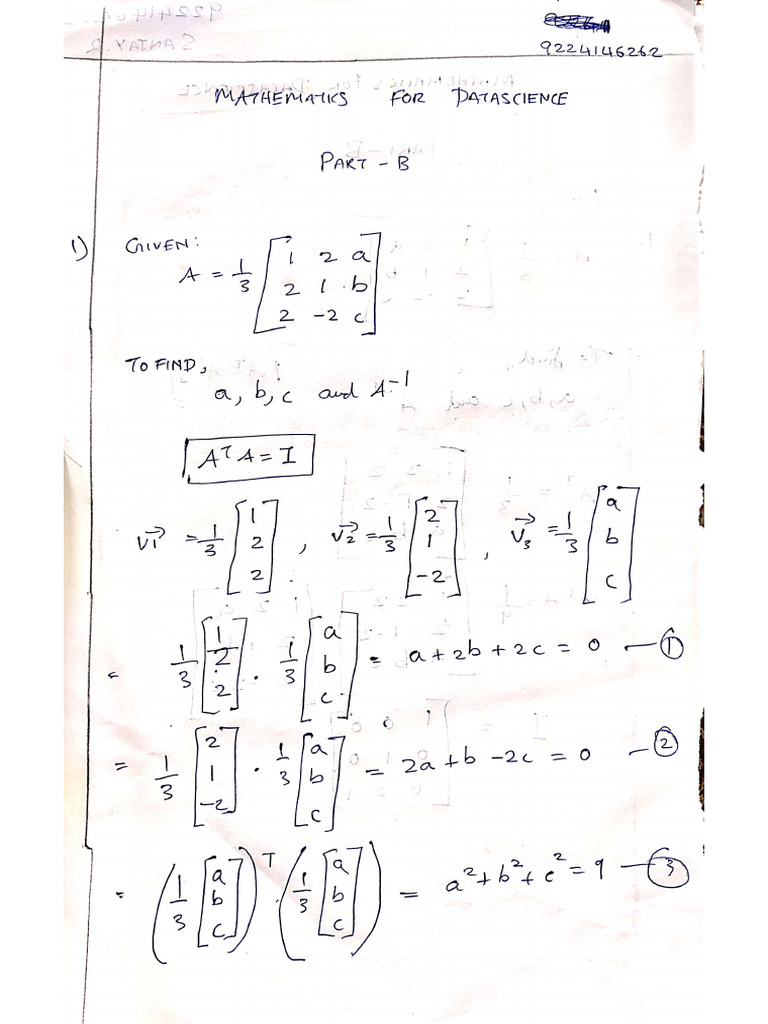 9224146262
MATHEMATICS FOR DATASCIENCE
PART - B
1) GIVEN:
A = 1/3 [1 2 a
2 1 b
2 -2 c]
TO FIND,
a, b, c and A⁻¹
AᵀA = I
v1→ = 1/3 [1 2 2], v2→ = 1/3 [2 1 -2], v3→ = 1/3 [a b c]
= 1/3 [1 2 2] · 1/3 [a b c] = a + 2b + 2c = 0 — ①
= 1/3 [2 1 -2] · 1/3 [a b c] = 2a + b - 2c = 0 — ②
= (1/3 [a b c])ᵀ · (1/3 [a b c]) = a² + b² + c² = 9 — ③